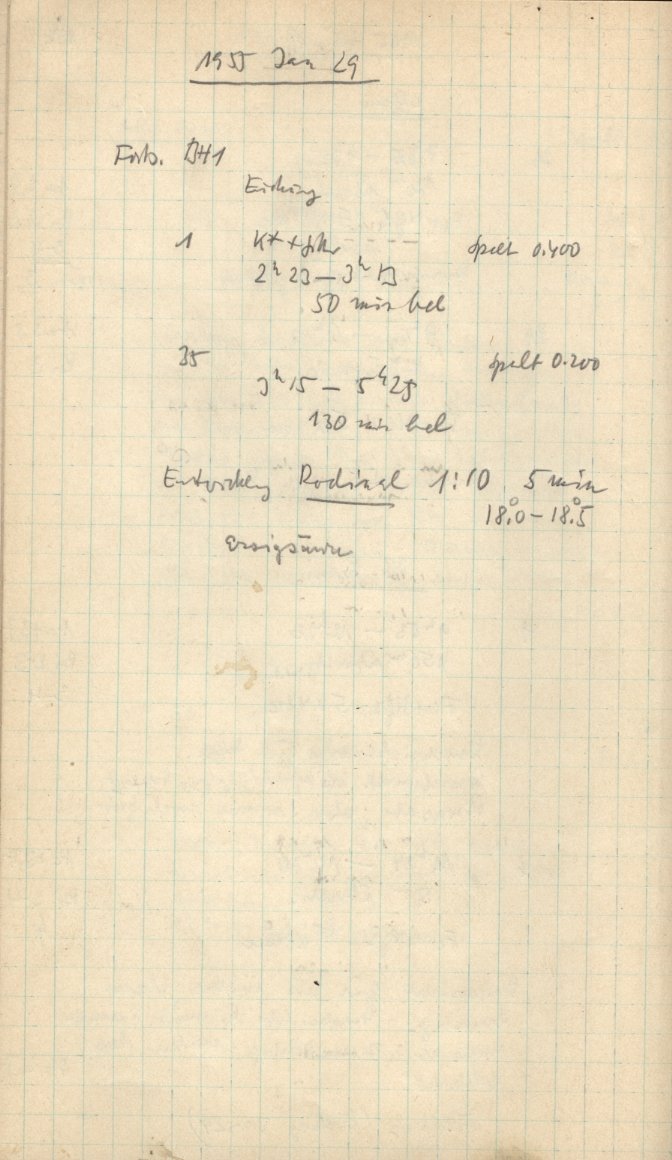 1955 Jan 29
Forts. BH1
Eichung
1 spalt 0.400
2ʰ 23 – 3ʰ 13
50 min bel
35 spalt 0.200
3ʰ 15 – 5ʰ 25
130 min bel
Entwicklg Rodinal 1:10 5 min
18.°0 – 18.°5
Essigsäure